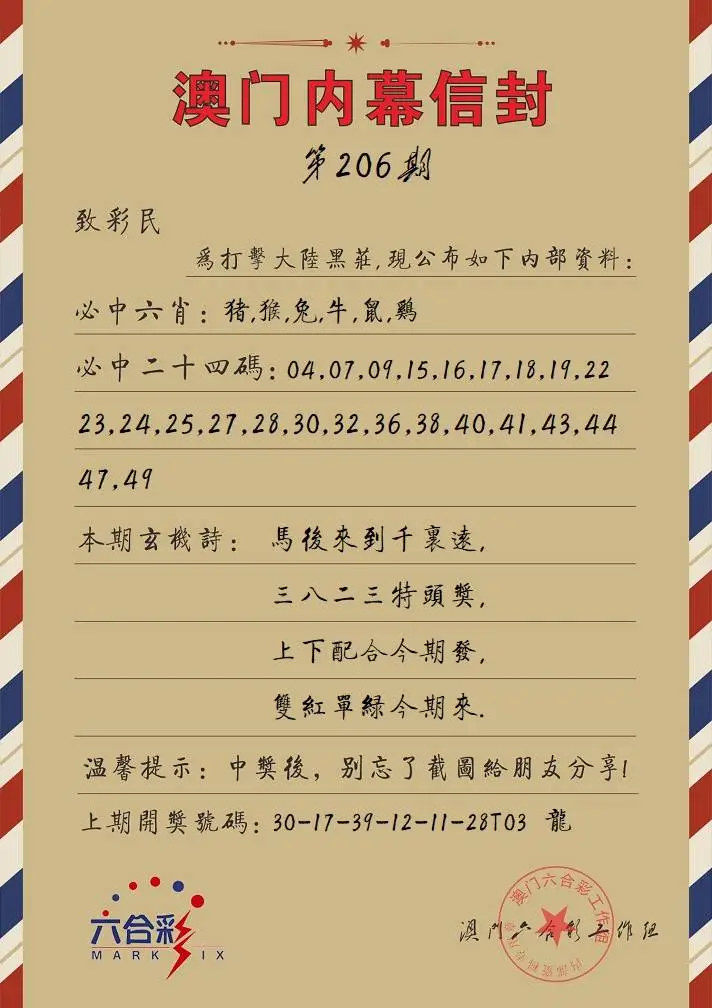 澳门内幕信封
第206期
致彩民
爲打擊大陸黑莊,現公布如下内部資料:
必中六肖:猪,猴,兔,牛,鼠,鷄
必中二十四碼:04,07,09,15,16,17,18,19,22
23,24,25,27,28,30,32,36,38,40,41,43,44
47,49
本期玄機詩: 馬後來到千裏遠,
三八二三特頭獎,
上下配合今期發,
雙紅單緑今期來.
温馨提示:中獎後,别忘了截圖給朋友分享!
上期開獎號碼:30-17-39-12-11-28T03 龍
六合彩
MARK SIX
澳门六合彩工作组
内部资料专用章
澳门六合彩工作组